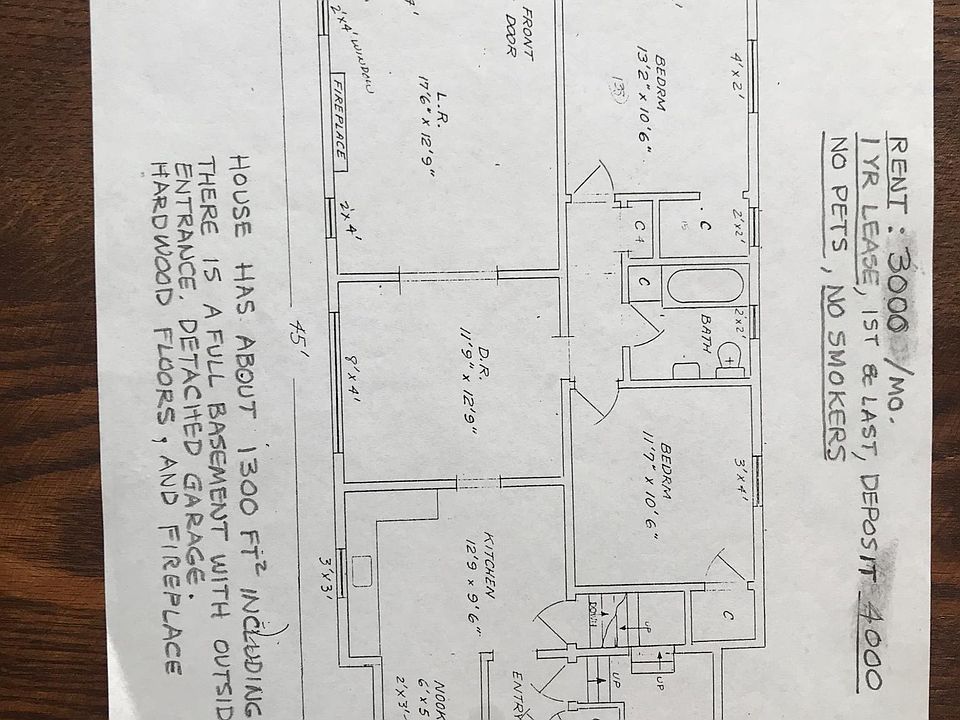 RENT: 3000/MO.
1 YR LEASE, 1ST & LAST, DEPOSIT 4000
NO PETS, NO SMOKERS
4'x2'
2'x2'
2'x2'
3'x4'
BEDRM
13'2" x 10'6"
C
C
C
BATH
BEDRM
11'7" x 10'6"
C
FRONT
DOOR
DOWN
UP
UP
UP
ENTRY
C
L.R.
17'6" x 12'9"
D.R.
11'9" x 12'9"
KITCHEN
12'9 x 9'6"
NOOK
6' x 5
2'x3'
2'x4' WINDOW
FIREPLACE
2'x4'
8'x4'
3'x3'
45'
HOUSE HAS ABOUT 1300 FT² INCLUDING
THERE IS A FULL BASEMENT WITH OUTSID
ENTRANCE, DETACHED GARAGE.
HARDWOOD FLOORS, AND FIREPLACE